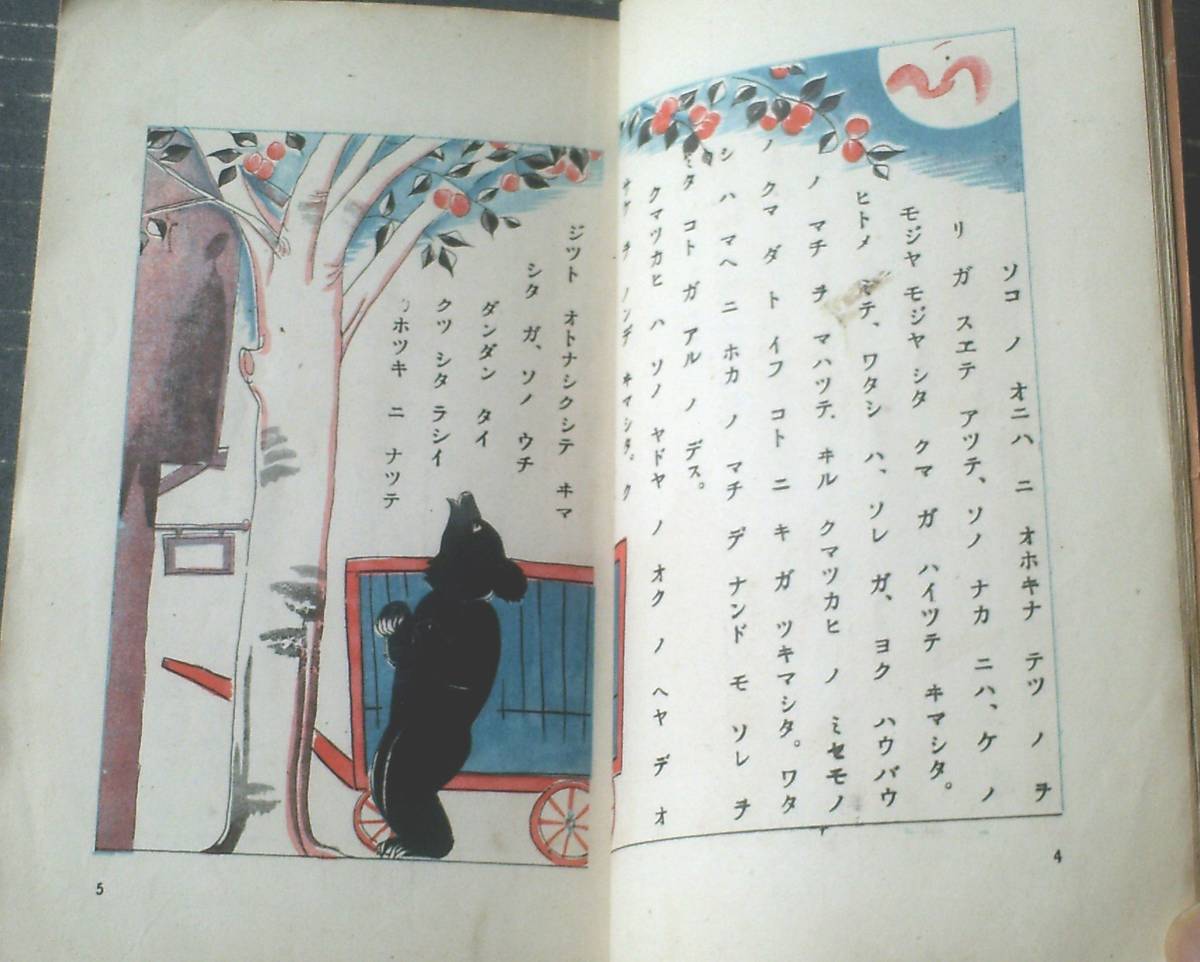 ソコ ノ オニハ ニ オホキナ テツ ノ ヲ
リ ガ スヱテ アツテ、ソノ ナカ ニハ、ケ ノ
モジヤ モジヤ シタ クマ ガ ハイツテ ヰマシタ。
ヒトメ ミテ、ワタシ ハ、ソレ ガ、ヨク ハウバウ
ノ マチ ヲ マハツテ、ヰル クマツカヒ ノ ミセモノ
ノ クマ ダ ト イフ コト ニ キ ガ ツキマシタ。ワタ
シ ハ マヘ ニ ホカ ノ マチ デ ナンド モ ソレ ヲ
ミタ コト ガ アル ノ デス。
クマツカヒ ハ ソノ ヤドヤ ノ オク ノ ヘヤ デ オ
サケ ヲ ノンデ ヰマシタ。ク
4
ジツト オトナシクシテ ヰマ
シタ ガ、ソノ ウチ
ダンダン タイ
クツ シタ ラシイ
ホツキ ニ ナツテ
5